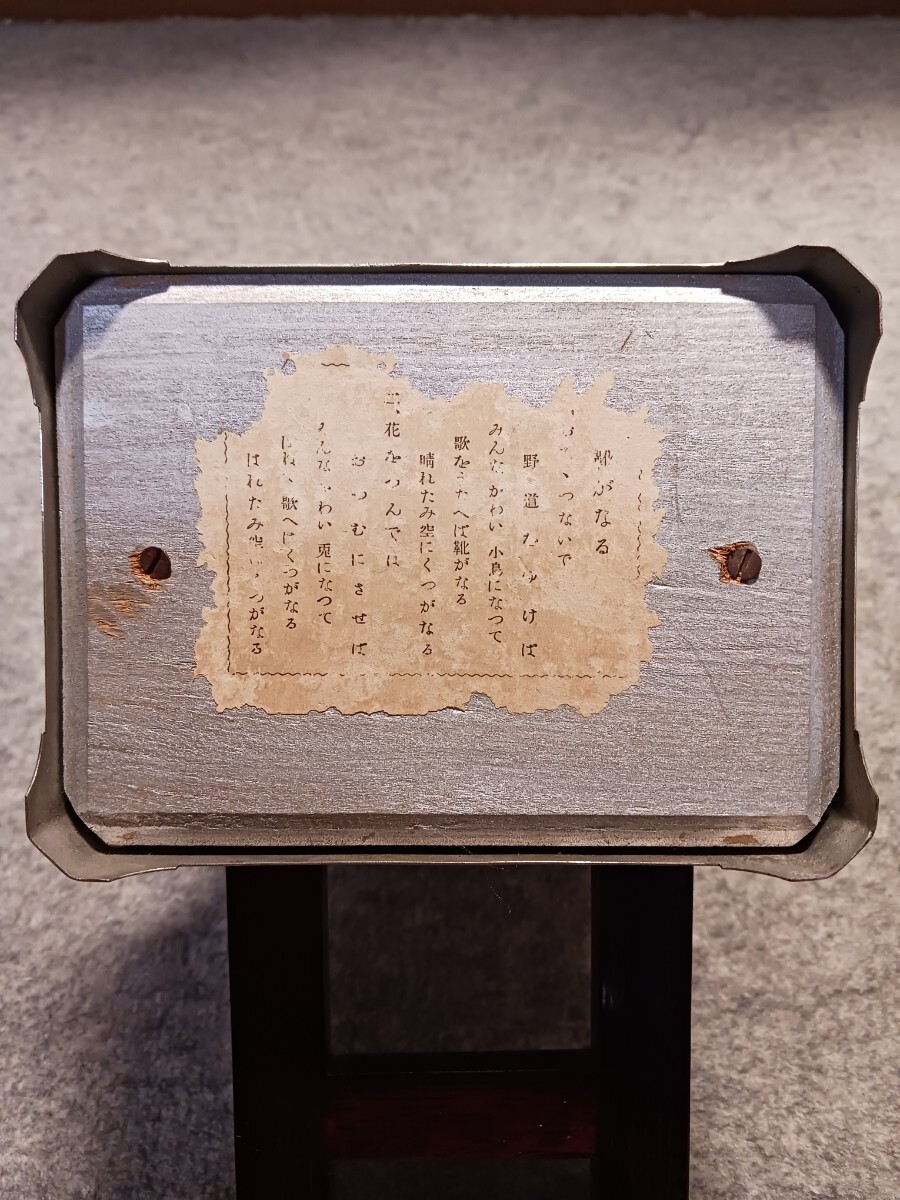 靴がなる
つないで
野道をゆけば
みんなかわい 小鳥になつて
歌をうたへば靴がなる
晴れたみ空にくつがなる
花をつんでは
おつむにさせば
んなかわい 兎になつて
はね 歌へばくつがなる
はれたみ空 くつがなる